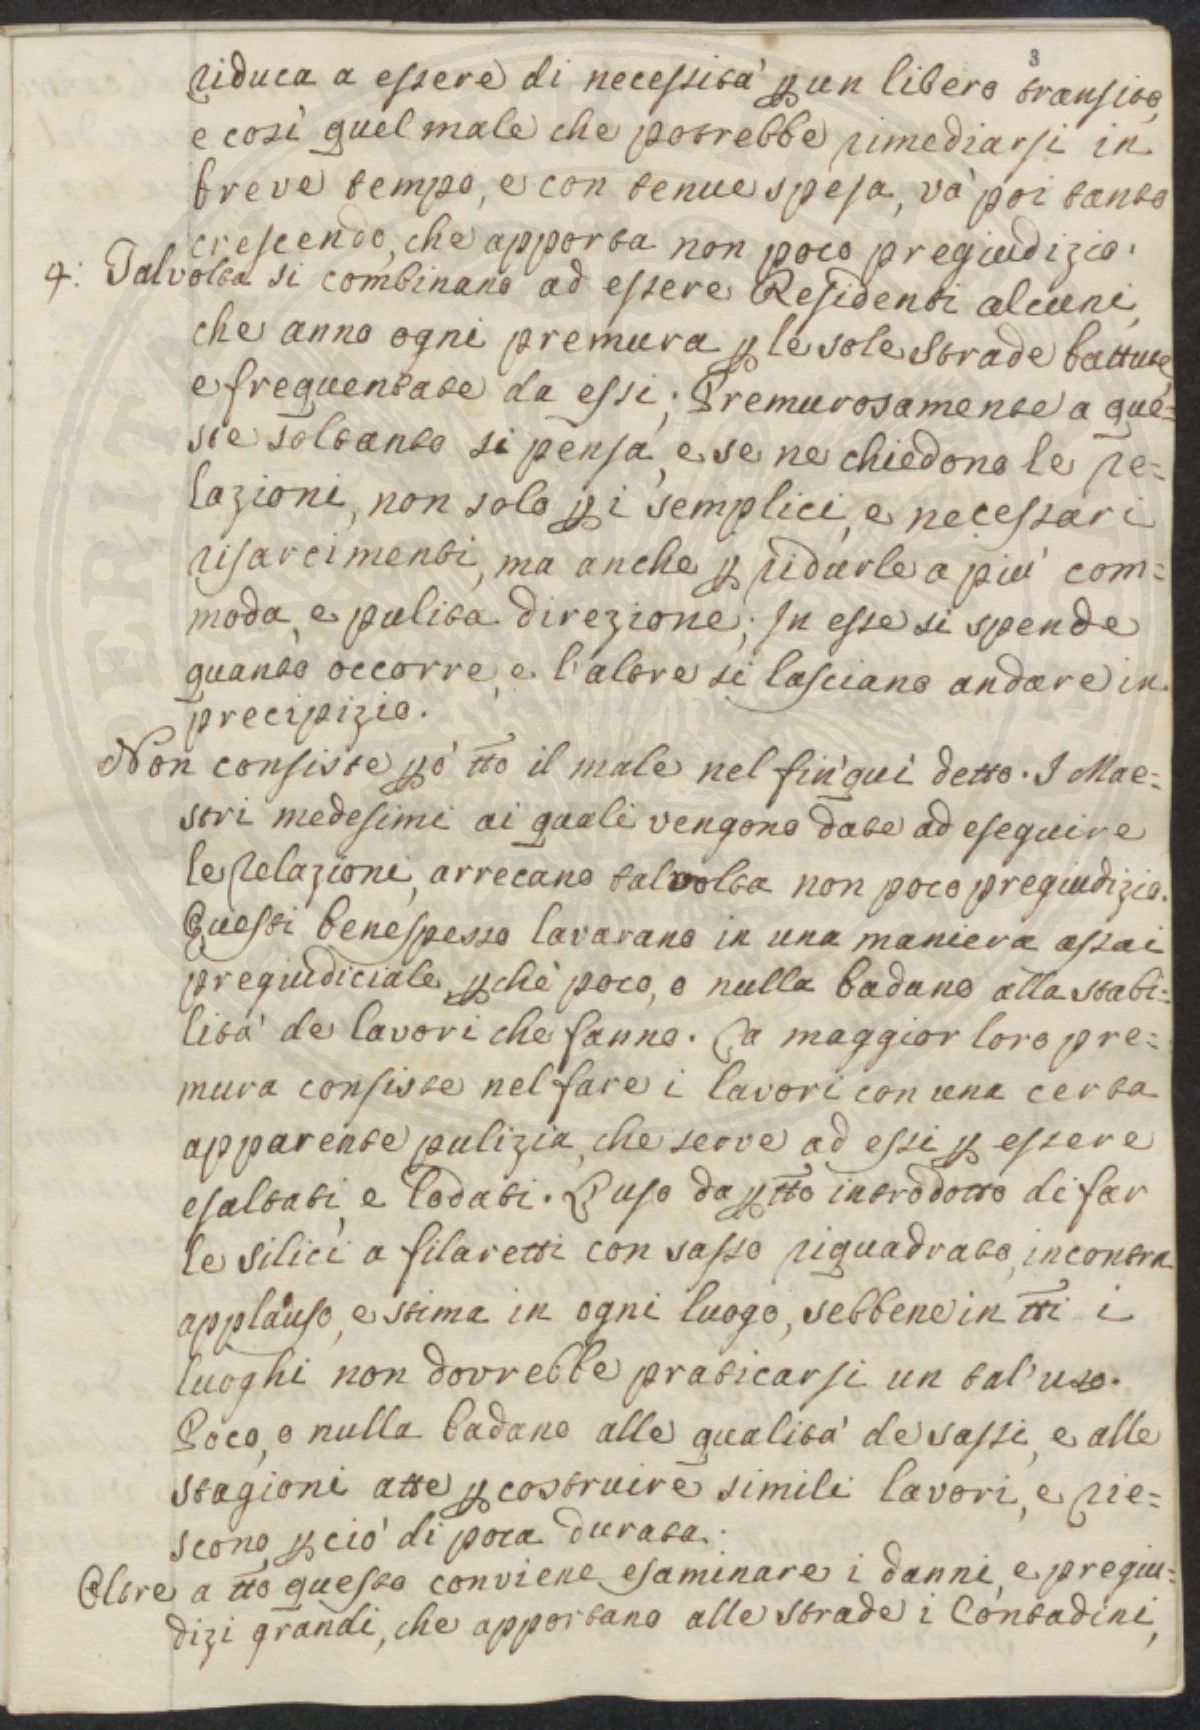 3
riduca a essere di necessità p un libero transito,
e così quel male che potrebbe rimediarsi in
breve tempo, e con tenue spesa, và poi tanto
crescendo, che apporta non poco pregiudizio.
4: Talvolta si combinano ad essere Residenti alcuni,
che anno ogni premura p le sole Strade battute,
e frequentate da essi; Premurosamente a que=
ste soltanto si pensa, e se ne chiedono le re=
lazioni, non solo p i semplici, e necessari
risarcimenti, ma anche p ridurle a più com=
moda, e pulita direzione; In esse si spende
quanto occorre, e l'altre si lasciano andare in
precipizio.
Non consiste pò tto il male nel fin'quì detto. I Mae=
stri medesimi ai quali vengono date ad eseguire
le relazioni, arrecano talvolta non poco pregiudizio.
Questi benespesso lavarano in una maniera assai
pregiudiciale, pchè poco, o nulla badano alla stabi=
lità de lavori che fanno. La maggior loro pre=
mura consiste nel fare i lavori con una certa
apparente pulizia, che serve ad essi p essere
esaltati, e lodati. L'uso da p tto introdotto di far
le silici a filaretti con sasso riquadrato, incontra
applauso, e stima in ogni luogo, sebbene in tti i
luoghi non dovrebbe praticarsi un tal'uso.
Poco, o nulla badano alle qualità de sassi, e alle
stagioni atte p costruire simili lavori, e rie=
scono p ciò di poca durata.
Oltre a tto questo conviene esaminare i danni, e pregiu=
dizi grandi, che apportano alle strade i Contadini,